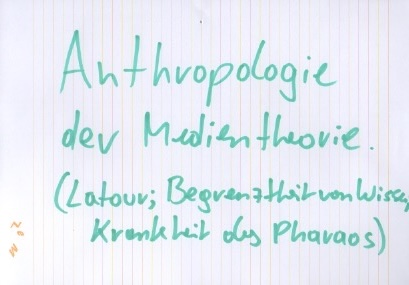 Anthropologie
der Medientheorie.
(Latour; Begrenztheit von Wissen,
Krankheit des Pharaos)